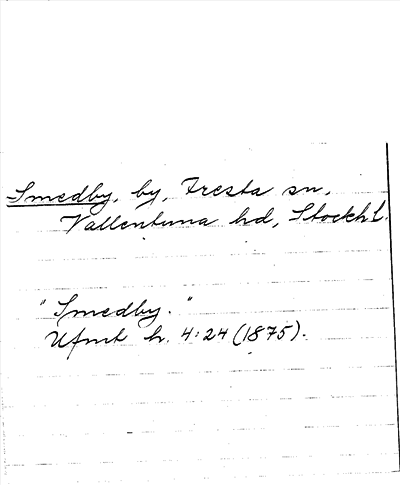 Smedby, by, Fresta sn,
Vallentuna hd, Stockh L.
"Smedby."
Ufmt h. 4:24 (1875).